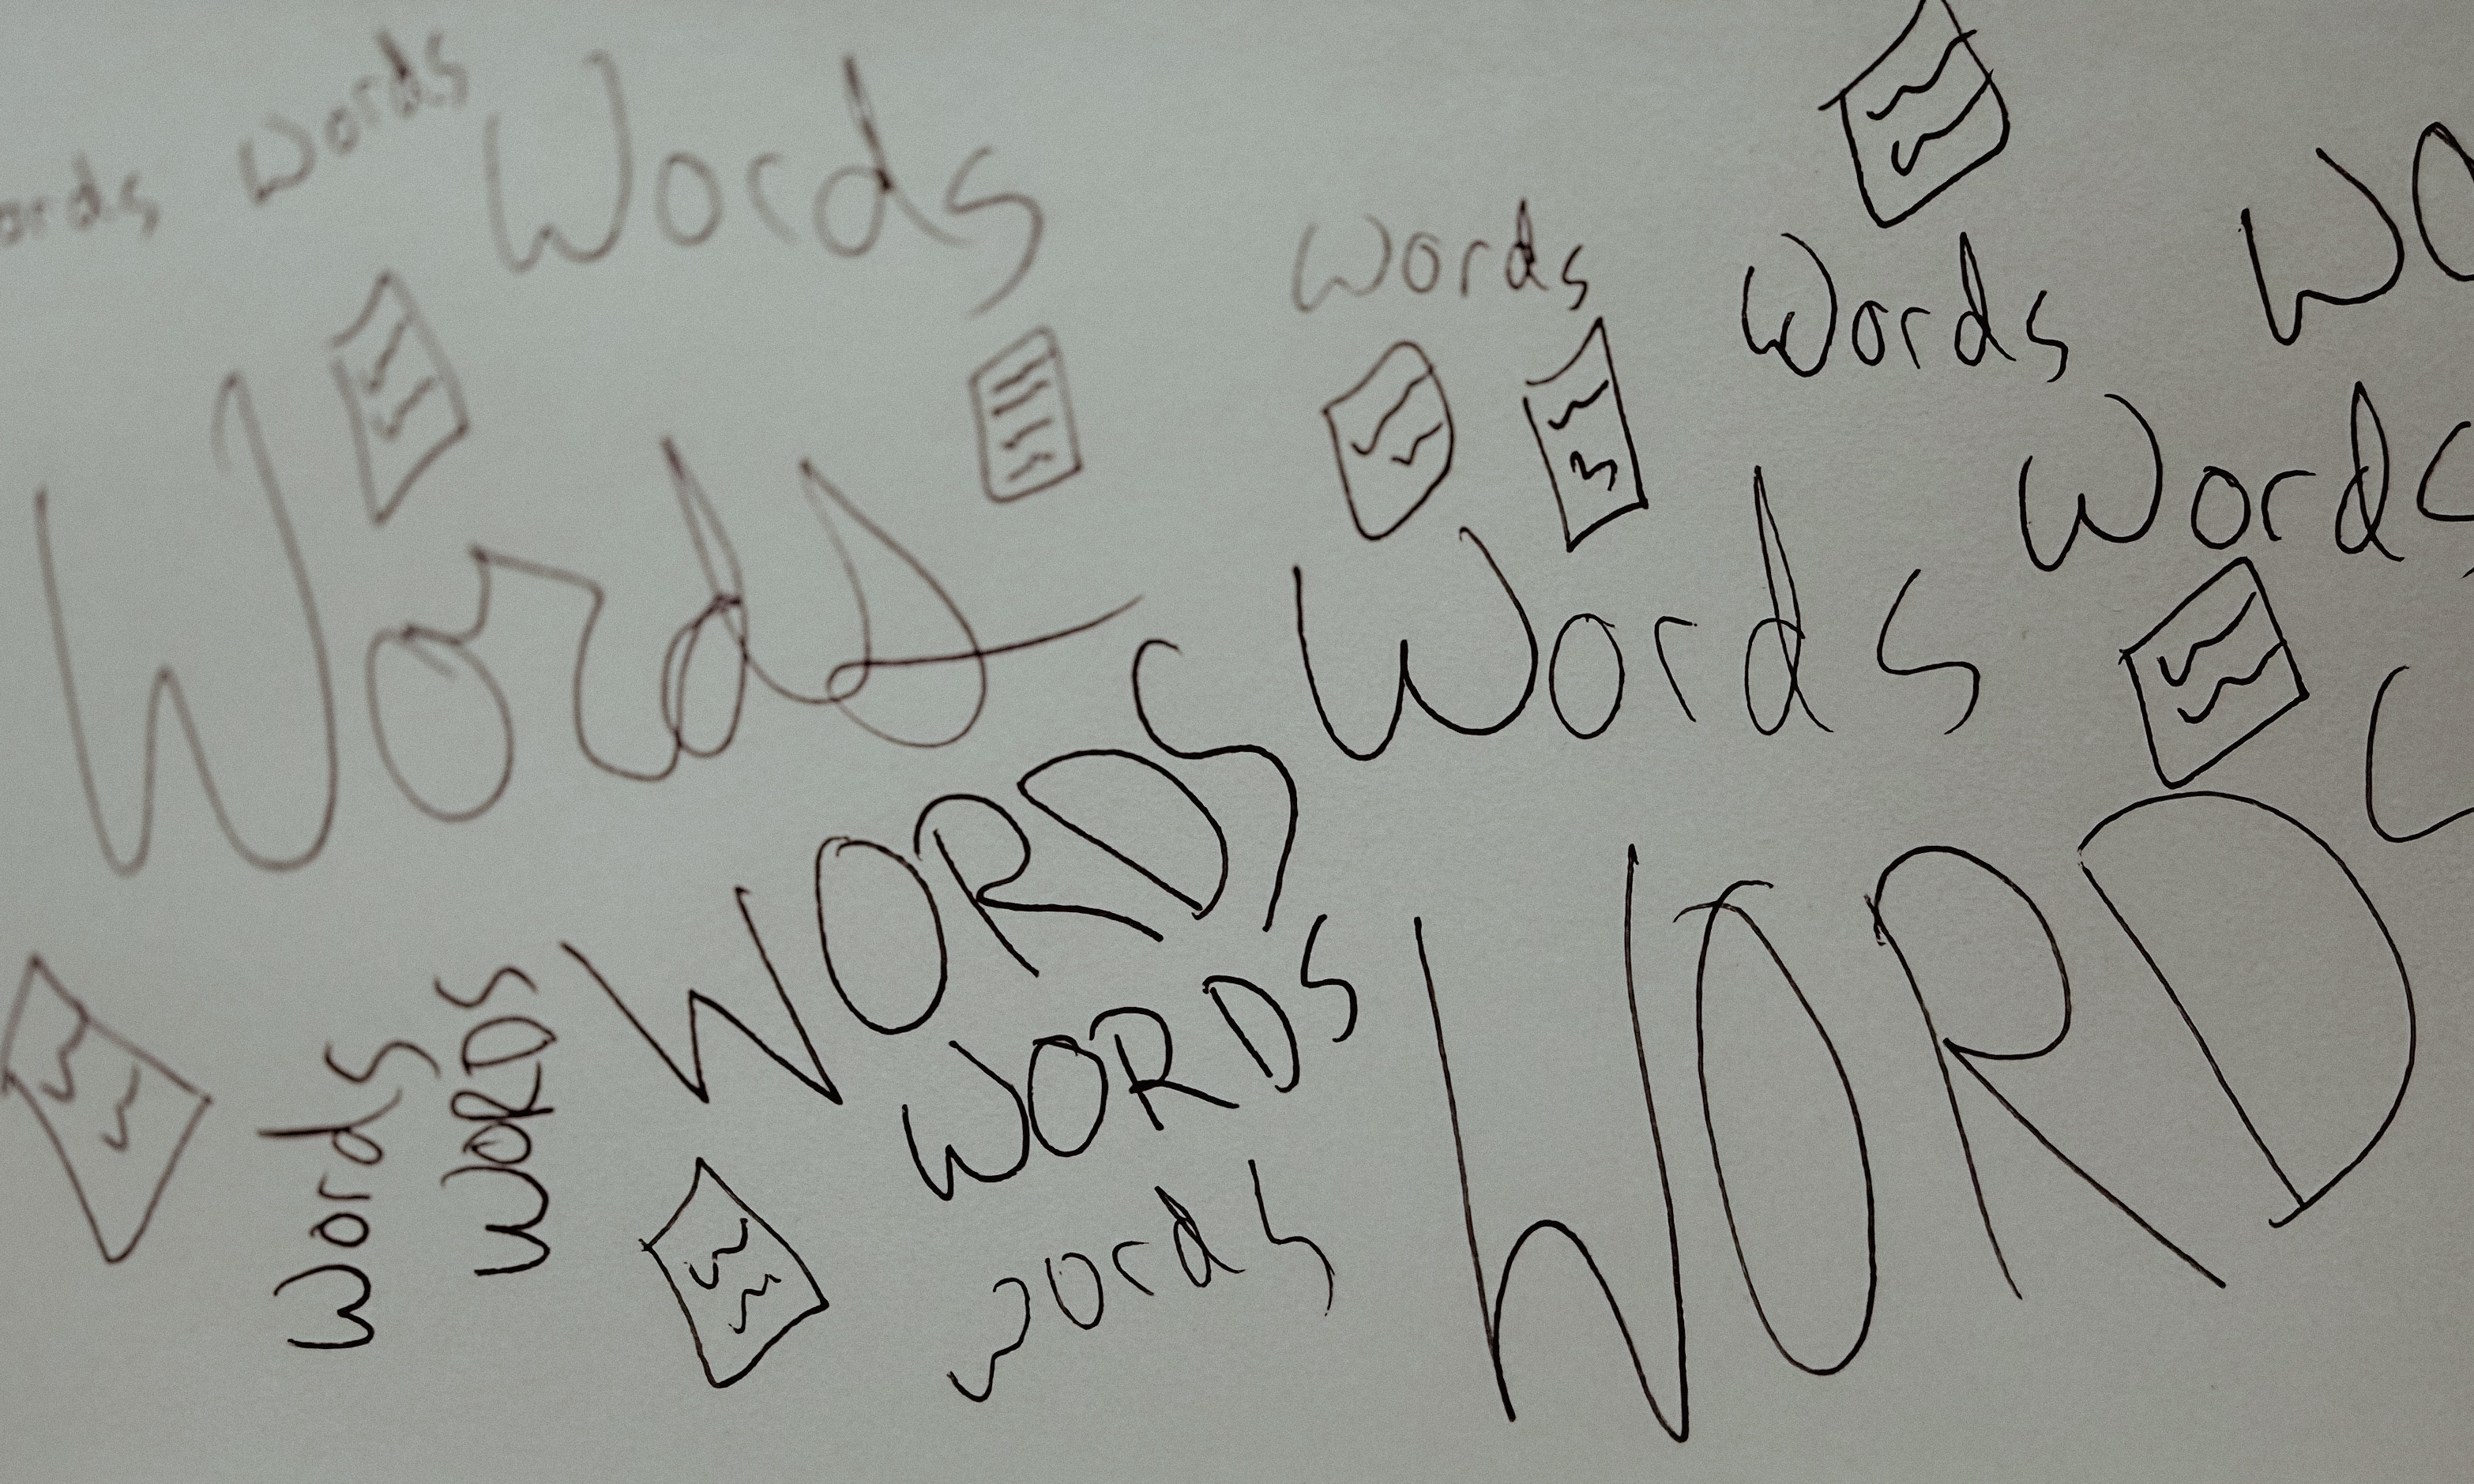 ords
Words
Words
Words
Words
Wo
Words
Words
Words
WORDS
WORDS
WORDS
Words
WORDS
words